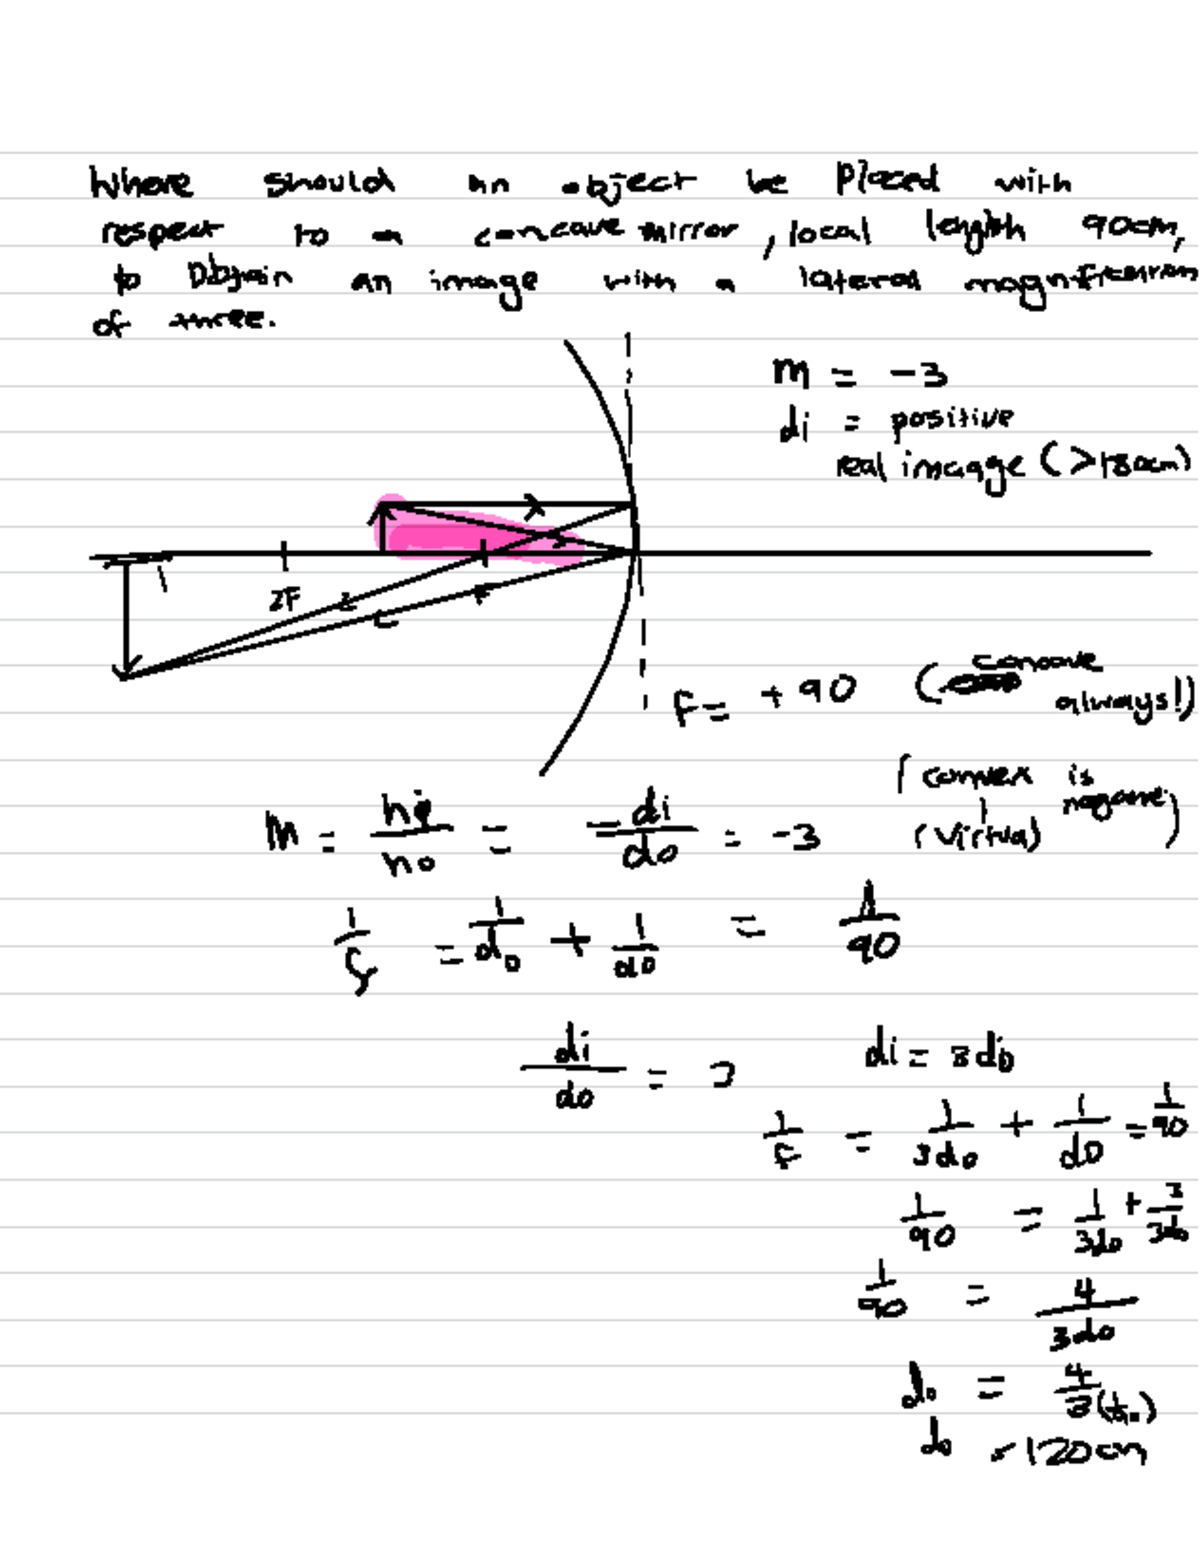 Where should an object be placed with
respect to a concave mirror, local length 90cm,
to obtain an image with a lateral magnification
of three.
m = -3
di = positive
real imagge (>180cm)
2F F
F = +90 (concave
always!)
(convex is
negative)
(virtual)
M = hi/ho = -di/do = -3
1/f = 1/do + 1/do = 1/90
di/do = 3 di = 3do
1/f = 1/3do + 1/do = 1/90
1/90 = 1/3do + 3/3do
1/90 = 4/3do
do = 4/3
do = 120cm